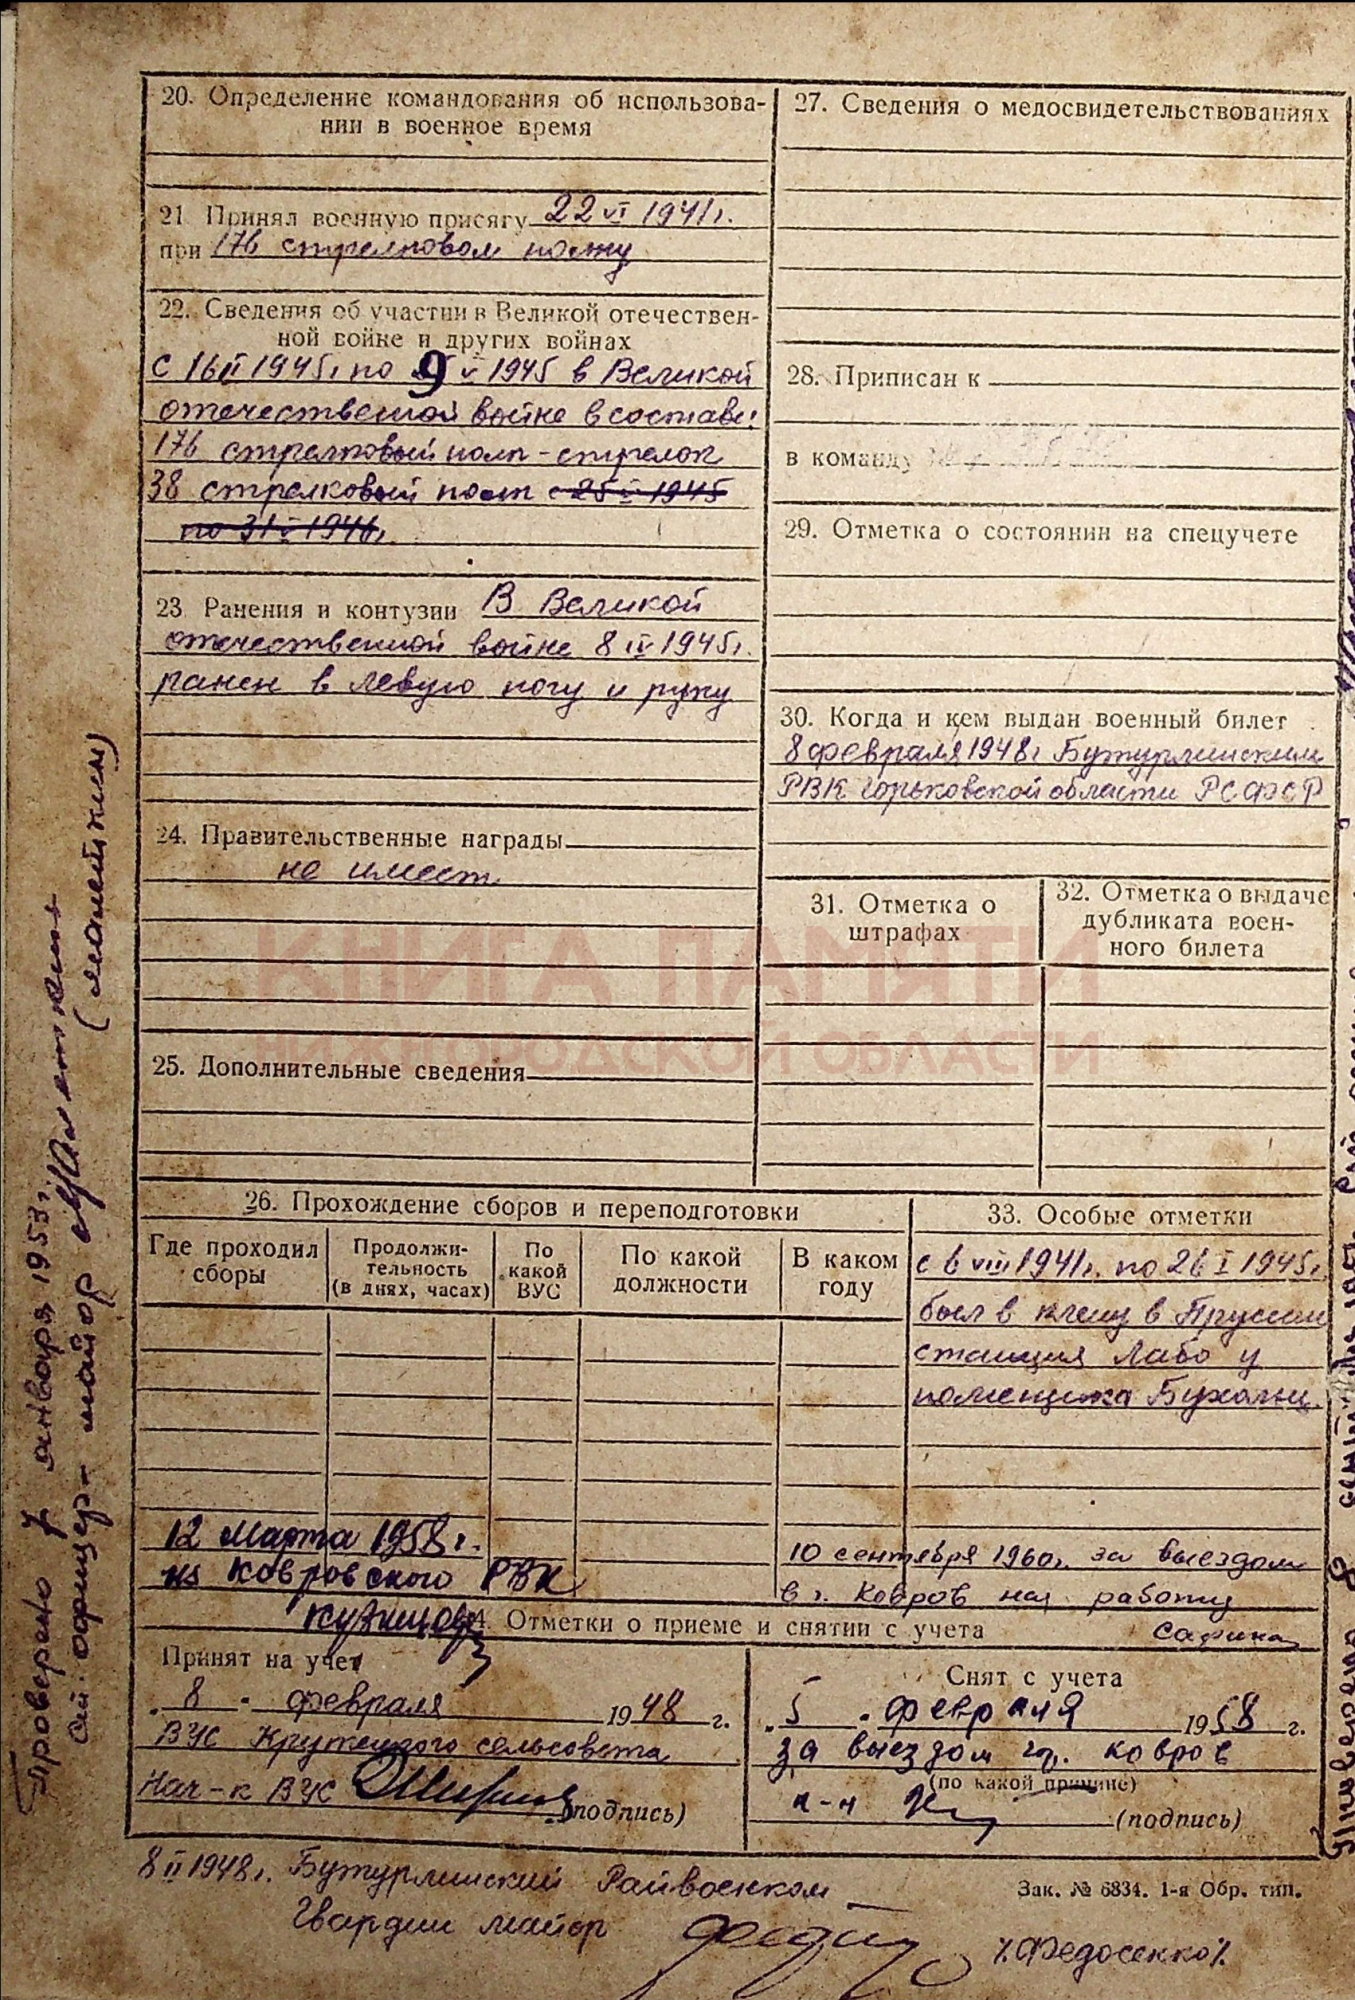 20. Определение командования об использова-
нии в военное время
21. Принял военную присягу 22 VI 1941г.
при 176 стрелковом полку
22. Сведения об участии в Великой отечествен-
ной войне и других войнах
с 16 II 1945г по 9 V 1945 в Великой
отечественной войне в составе:
176 стрелковый полк - стрелок
38 стрелковый полк с 25 V 1945
по 31 V 1946г.
23. Ранения и контузии В Великой
отечественной войне 8 IV 1945г.
ранен в левую ногу и руку
24. Правительственные награды
не имеет
25. Дополнительные сведения
27. Сведения о медосвидетельствованиях
28. Приписан к
в команду
29. Отметка о состоянии на спецучете
30. Когда и кем выдан военный билет
8 февраля 1948г Бутурлинским
РВК Горьковской области РСФСР
31. Отметка о
штрафах
32. Отметка о выдаче
дубликата воен-
ного билета
КНИГА ПАМЯТИ
НИЖЕГОРОДСКОЙ ОБЛАСТИ
26. Прохождение сборов и переподготовки
Где проходил
сборы
Продолжи-
тельность
(в днях, часах)
По
какой
ВУС
По какой
должности
В каком
году
33. Особые отметки
с 6 VIII 1941г. по 26 I 1945г.
был в плену в Пруссии
станция Лабо у
помещика
12 марта 1958г.
Ковровского РВК
Кузнецов
10 сентября 1960г. за выездом
в г. Ковров на работу
4. Отметки о приеме и снятии с учета
Принят на учет
8 февраля 1948 г.
ВУС Крутецкого сельсовета
Нач-к ВУС (подпись)
Снят с учета
5 февраля 1958 г.
за выездом гор. Ковров
(по какой причине)
к-н (подпись)
8 II 1948г. Бутурлинский Райвоенком
Гвардии майор /Федосенко/
Зак. № 6834. 1-я Обр. тип.
Проверено 7 января 1953 г.
офицер - майор